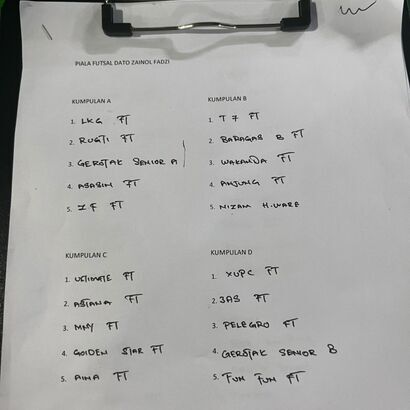 PIALA FUTSAL DATO ZAINOL FADZI
KUMPULAN A
1. LKG FT
2. RUGTI FT
3. GEROTAK SENIOR A
4. ASASIM FT
5. ZF FT
KUMPULAN B
1. T7 FT
2. BARAGAS B FT
3. WAKANDA FT
4. ANJUNG FT
5. NIZAM H.WARE
KUMPULAN C
1. ULTIMATE FT
2. ASTANA FT
3. MNY FT
4. GOLDEN STAR FT
5. AIMA FT
KUMPULAN D
1. XUPC FT
2. 3AS FT
3. PELEGRO FT
4. GEROTAK SENIOR B
5. FUN FUN FT